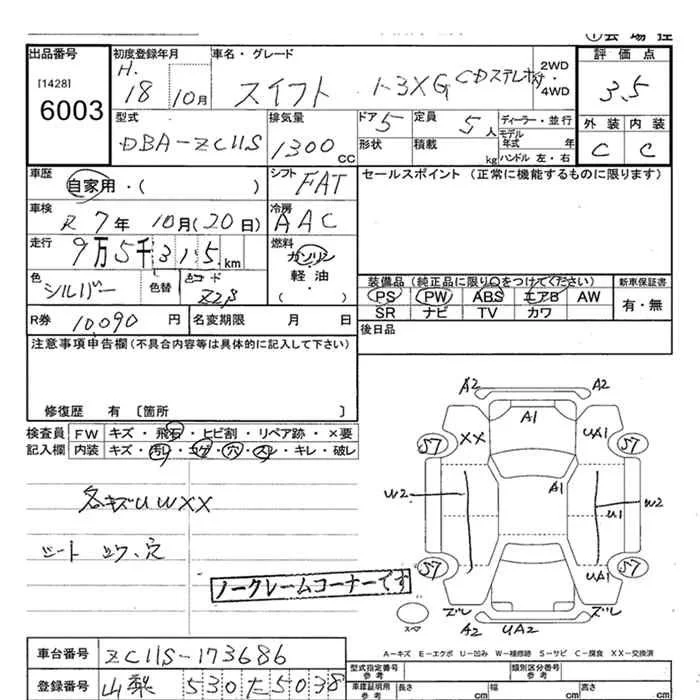 ①会場控
出品番号
[1428]
6003
初度登録年月
H.
18 10月
車名・グレード
スイフト 1-3XG CDステレオ付
2WD
・
4WD
評価点
3.5
外装 内装
C C
型式
DBA-ZC11S
排気量
1300 CC
ドア 5
形状
定員 5人
積載 kg
ディーラー・並行
モデル
年式 年
ハンドル 左・右
車歴
自家用・( )
シフト
FAT
セールスポイント(正常に機能するものに限ります)
車検
R 7年 10月(20日)
冷房
AAC
走行
9万5千315.km
燃料
ガソリン
軽・油
( )
色
シルバー
色替
色コード
Z2S
装備品(純正品に限り○をつけてください)
PS PW ABS エアB AW
SR ナビ TV カワ
新車保証書
有・無
R券 10,090 円
名変期限 月 日
後日品
注意事項申告欄(不具合内容等は具体的に記入して下さい)
修復歴 有 [箇所 ]
検査員
記入欄
FW キズ・飛石・ヒビ割・リペア跡・×要
内装 キズ・汚レ・コゲ・穴・スレ・キレ・破レ
各キズUWXX
シート コゲ、穴
ノークレームコーナーです
A2 A2
A1
XX UA1
S7 S7
A1
W2 W2
U1
S7 UA1 S7
ズレ ズレ
A2 UA2
スペア
A-キズ E-エクボ U-凹み W-補修跡 S-サビ C-腐食 XX-交換済
車台番号 ZC11S-173686
登録番号 山梨 530 た 5038
型式指定番号
参考
類別区分番号
参考
車庫証明用
参考
長さ cm
幅 cm
高さ cm